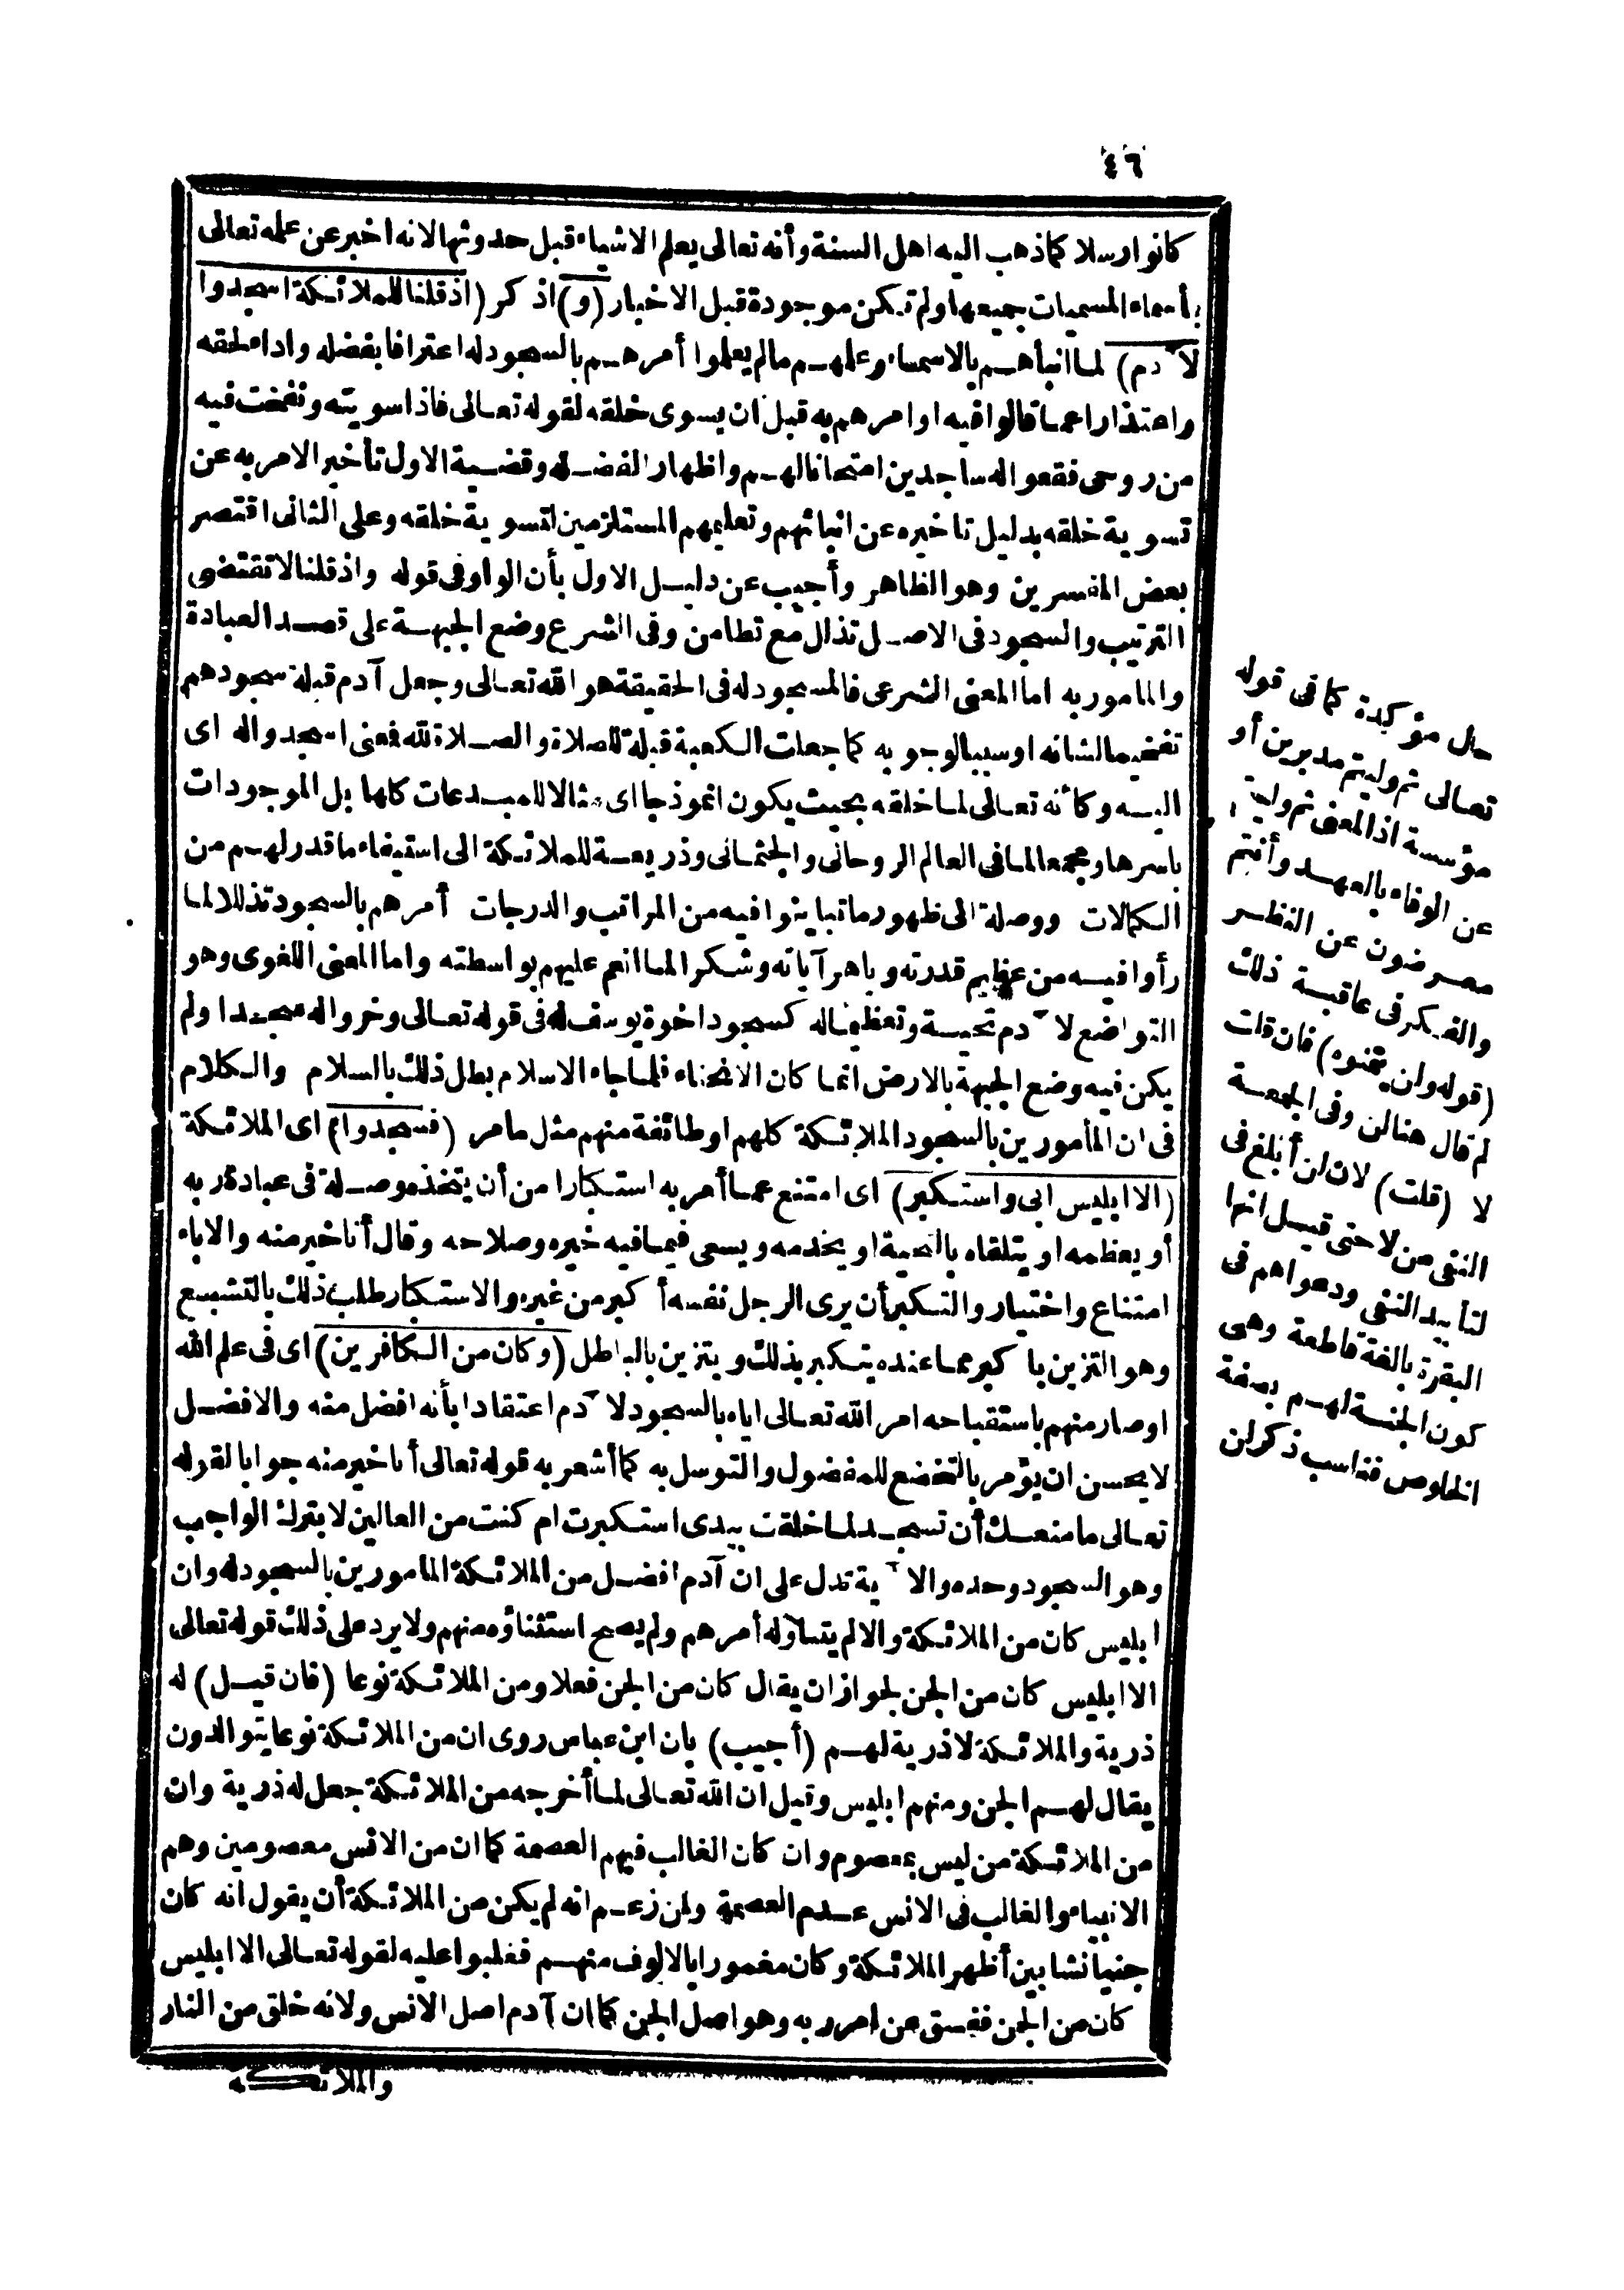 ٤٦
كانوا رسلا كما ذهب اليه اهل السنة وأنه تعالى يعلم الاشياء قبل حدوثها لانه اخبر عن علمه تعالى
بأسماء المسميات جميعها ولم تكن موجودة قبل الاخبار (و) اذكر (اذ قلنا للملائكة اسجدوا
لآدم) لما انبأهم بالاسماء وعلمهم مالم يعلموا أمرهم بالسجود له اعترافا بفضله واداء لحقه
واعتذارا عما قالوا فيه او امرهم به قبل ان يسوى خلقه لقوله تعالى فاذا سويته ونفخت فيه
من روحى فقعوا له ساجدين امتحانا لهم واظهار الفضله وقضية الاول تأخير الامر به عن
تسوية خلقه بدليل تاخيره عن انبائهم وتعليمهم المستلزمين لتسوية خلقه وعلى الثانى اقتصر
بعض المفسرين وهو الظاهر وأجيب عن دليل الاول بأن الواو فى قوله واذ قلنا لا تقتضى
الترتيب والسجود فى الاصل تذال مع تطامن وفى الشرع وضع الجبهة على قصد العبادة
والمامور به اما المعنى الشرعى فالمسجود له فى الحقيقة هو الله تعالى وجعل آدم قبلة سجودهم
تفخيما لشانه او سببا لوجوبه كما جعلت الكعبة قبلة للصلاة والصلاة لله فمعنى اسجدوا له اى
اليه وكأنه تعالى لما خلقه بحيث يكون انموذجا اى مثالا للمبدعات كلها بل الموجودات
باسرها ومجمعا لما فى العالم الروحانى والجثمانى وذريعة للملائكة الى استيفاء ما قدر لهم من
الكمالات ووصلة الى ظهور ما تباينوا فيه من المراتب والدرجات أمرهم بالسجود تذللا لما
رأوا فيه من عظيم قدرته وباهر آياته وشكرا لما انعم عليهم بواسطته واما المعنى اللغوى وهو
التواضع لآدم تحية وتعظيما له كسجود اخوة يوسف له فى قوله تعالى وخروا له سجدا ولم
يكن فيه وضع الجبهة بالارض انما كان الانحناء فلما جاء الاسلام بطل ذلك بالسلام والكلام
فى ان المأمورين بالسجود الملائكة كلهم او طائفة منهم مثل ما مر (فسجدوا) اى الملائكة
(الا ابليس ابى واستكبر) اى امتنع عما أمر به استكبارا من أن يتخذه وصلة فى عبادة ربه
أو يعظمه او يتلقاه بالتحية او يخدمه ويسعى فيما فيه خيره وصلاحه وقال أنا خير منه والاباء
امتناع واختيار والتكبر أن يرى الرجل نفسه أكبر من غيره والاستكبار طلب ذلك بالتشبع
وهو التزين باكبر مما عنده يتكبر بذلك ويتزين بالباطل (وكان من الكافرين) اى فى علم الله
او صار منهم باستقباحه امر الله تعالى اياه بالسجود لآدم اعتقادا بأنه افضل منه والافضل
لا يحسن ان يؤمر بالتخضع للمفضول والتوسل به كما أشعر به قوله تعالى أنا خير منه جوابا لقوله
تعالى ما منعك أن تسجد لما خلقت بيدى استكبرت ام كنت من العالين لا بترك الواجب
وهو السجود وحده والآية تدل على ان آدم افضل من الملائكة المامورين بالسجود له وان
ابليس كان من الملائكة والا لم يتناوله أمرهم ولم يصح استثناؤه منهم ولا يرد على ذلك قوله تعالى
الا ابليس كان من الجن لجواز ان يقال كان من الجن فعلا ومن الملائكة نوعا (فان قيل) له
ذرية والملائكة لا ذرية لهم (أجيب) بان ابن عباس روى ان من الملائكة نوعا يتوالدون
يقال لهم الجن ومنهم ابليس وقيل ان الله تعالى لما أخرجه من الملائكة جعل له ذرية وان
من الملائكة من ليس بمعصوم وان كان الغالب فيهم العصمة كما ان من الانس معصومين وهم
الانبياء والغالب فى الانس عدم العصمة ولمن زعم انه لم يكن من الملائكة أن يقول انه كان
جنيا نشا بين أظهر الملائكة وكان مغمورا بالالوف منهم فغلبوا عليه لقوله تعالى الا ابليس
كان من الجن ففسق عن امر ربه وهو اصل الجن كما ان آدم اصل الانس ولانه خلق من النار
والملائكة
حال مؤكدة كما فى قوله
تعالى ثم وليتم مدبرين أو
مؤسسة اذ المعنى ثم وليتم
عن الوفاء بالعهد وأنتم
معرضون عن النظر
والفكر فى عاقبة ذلك
(قوله وان يتمنوه) فان قلت
لم قال هنا لن وفى الجمعة
لا (قلت) لان لن أبلغ فى
النفى من لا حتى قيل انها
لتأبيد النفى ودعواهم فى
البقرة بالغة قاطعة وهى
كون الجنة لهم بصفة
الخلوص فناسب ذكر لن